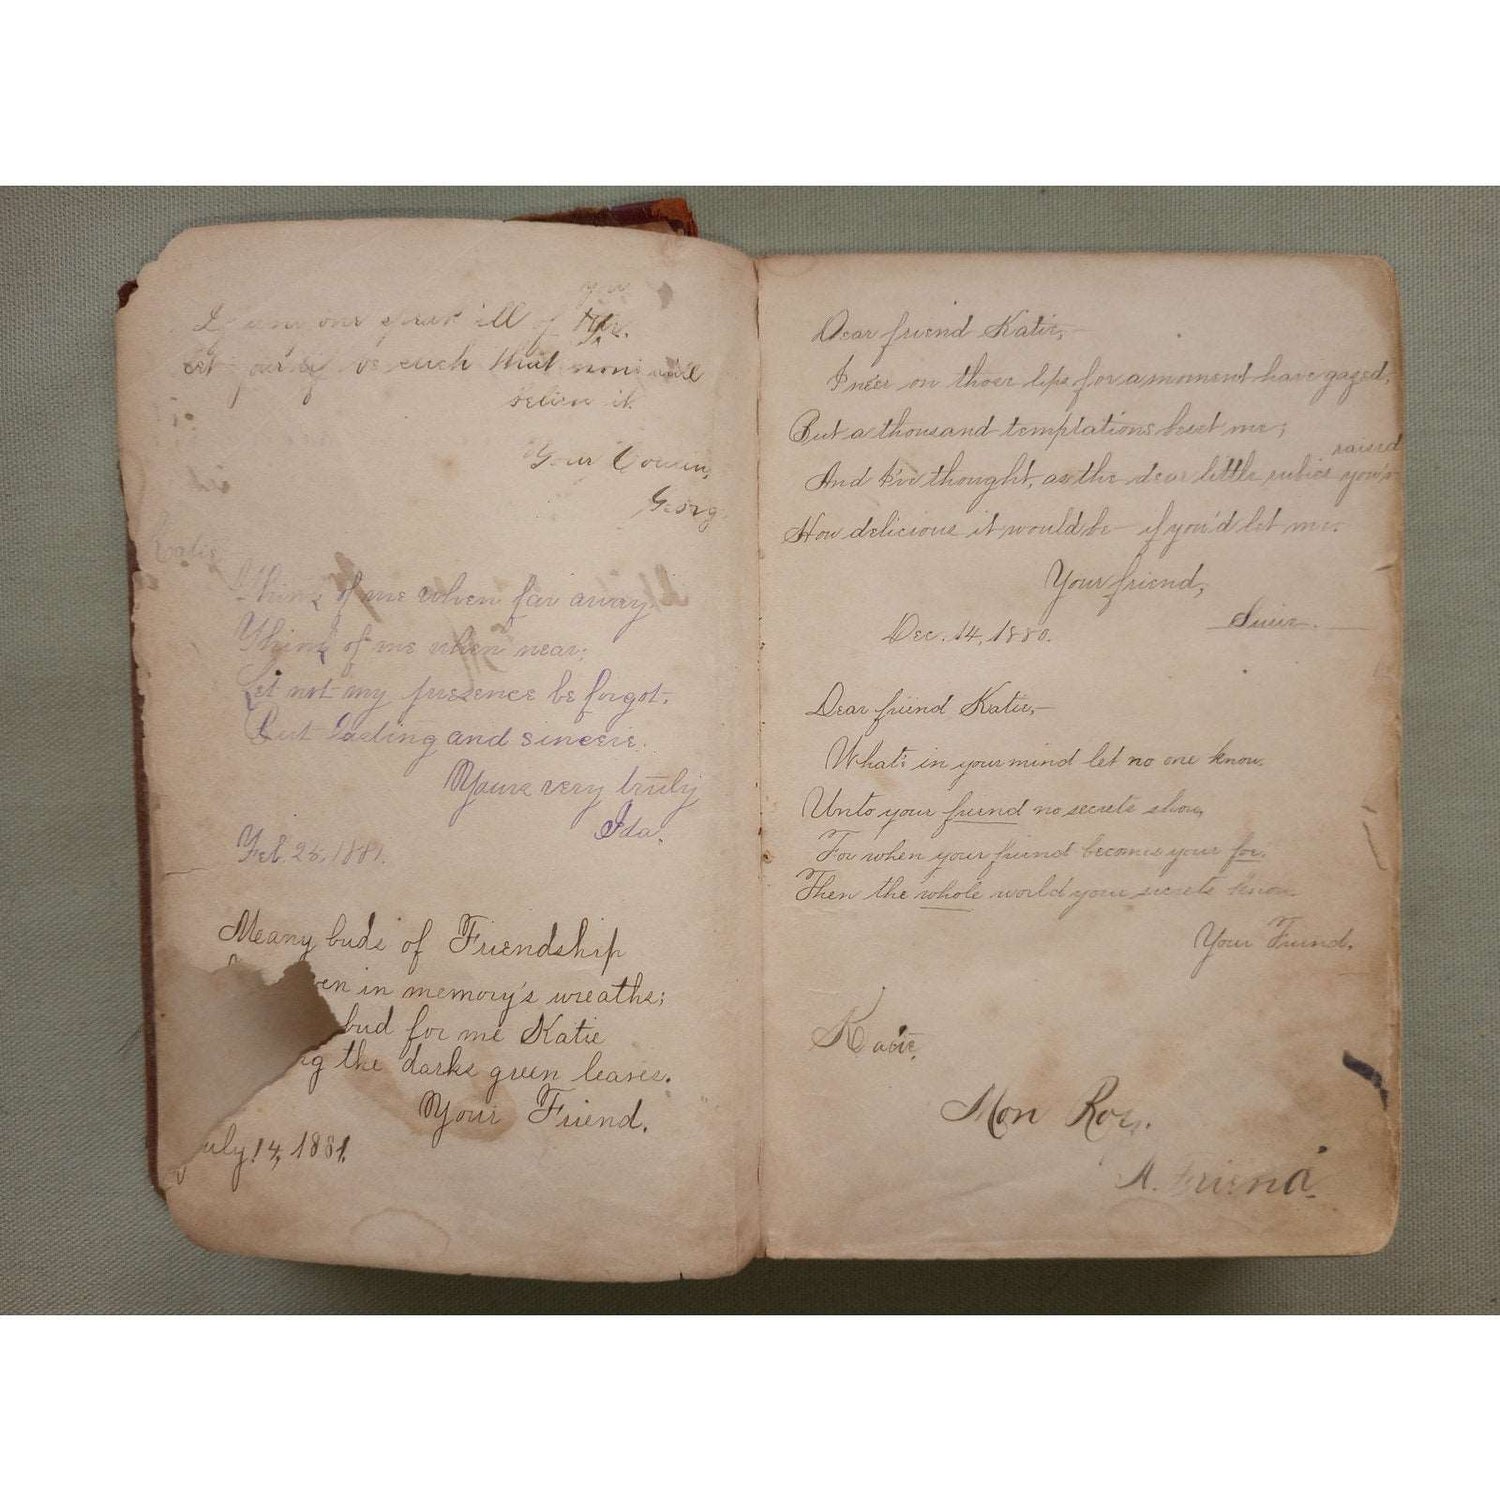 you
If some one speak ill of
Let your life be such that none will
believe it.
Your Cousin,
Georg
Katie
Think of me when far away.
Think of me when near;
Let not my presence be forgot.
But lasting and sincere.
Yours very truly
Ida.
Feb. 25, 1881.
Meany buds of Friendship
en in memory's wreaths;
bud for me Katie
g the darke green leaves.
Your Friend.
uly 14, 1881.
Dear friend Katie,—
I ne'er on those lips for a moment have gazed,
But a thousand temptations beset me;
raised
And I've thought, as the dear little rubies you'v
How delicious it would be – if you'd let me.
Your friend,
Susie.
Dec. 14, 1880.
Dear friend Katie,—
What's in your mind let no one know.
Unto your friend no secrets show,
For when your friend becomes your foe.
Then the whole world your secrets know.
Your Friend.
Katie.
Mon Roy.
A. Friend.